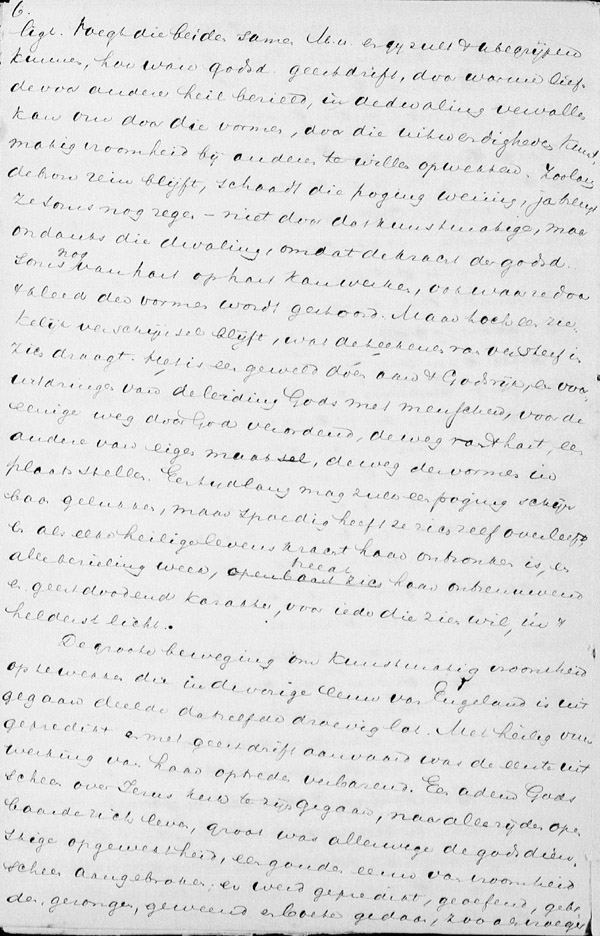 6.
ligt. Voegt die beiden samen M.n. en gij zult 't u begrijpen
kunnen, hoe ware godsd. geestdrift, door warme lief-
de voor anderer heil bezield, in de dwaling vervallen
kan om door die vormen, door die uitwendigheden kunst-
matig vroomheid bij anderen te willen opwekken. Zoolang
de bron rein blijft, schaadt die poging weinig, ja brengt
ze soms nog zegen – niet door dat kunstmatige, maar
ondanks die dwaling, omdat de kracht der godsd.
soms nog van hart op hart kan werken, ook waar ze door
't kleed der vormen wordt gestoord. Maar toch een zie-
kelijk verschijnsel blijft, wat de teekenen van verderf in
zich draagt. Het is een geweld doen aan 't Godsrijk, en voor-
uitdringen van de leiding Gods met menschen, voor de
eenige weg door God verordend, de weg van 't hart, een
andere van eigen maaksel, de weg der vormen in
plaats stellen. Een tijdlang mag zulk een poging schijn-
baar gelukken, maar spoedig heeft ze zich zelf overleefd,
en als eens heilige levenskracht haar ontvonken is, en
alle bezieling week, treedt haar ontzenuwend
en geestdoodend karakter, voor ieder die zien wil, in 't
helderst licht.
De groote beweging om kunstmatig vroomheid
op te wekken die in de vorige eeuw van Engeland is uit
gegaan deelde datzelfde droevig lot. Met heilig vuur
gepredikt en met geestdrift aanvaard was de eerste uit
werking van haar optreden verbazend. Een adem Gods
scheen over Jezus kerk te zijn gegaan, naar alle zijden open
baarde zich leven, groot was allerwege de godsdien-
stige opgewektheid, een gouden eeuw van vroomheid
scheen aangebroken; er werd gepredikt, geoefend, gebe-
den, gezongen, geweend en boete gedaan, zoo als vroeger